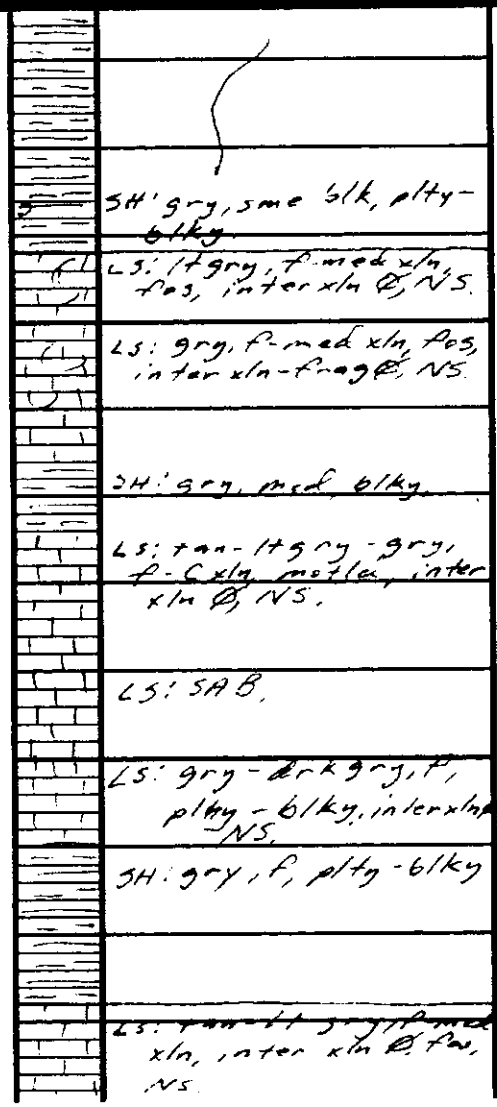 SH: gry, sme blk, plty-
blky.
LS: lt gry, f-med xln,
fos, inter xln Ø, NS.
LS: gry, f-med xln, fos,
inter xln-frag Ø, NS.
SH: gry, med, blky.
LS: tan-lt gry-gry,
f-C xln, inter
xln Ø, NS.
LS: SAB.
LS: gry-drk gry, f,
plty-blky, inter xln Ø
NS.
SH: gry, f, plty-blky
LS: tan-lt gry, f-med
xln, inter xln Ø, fos,
NS.